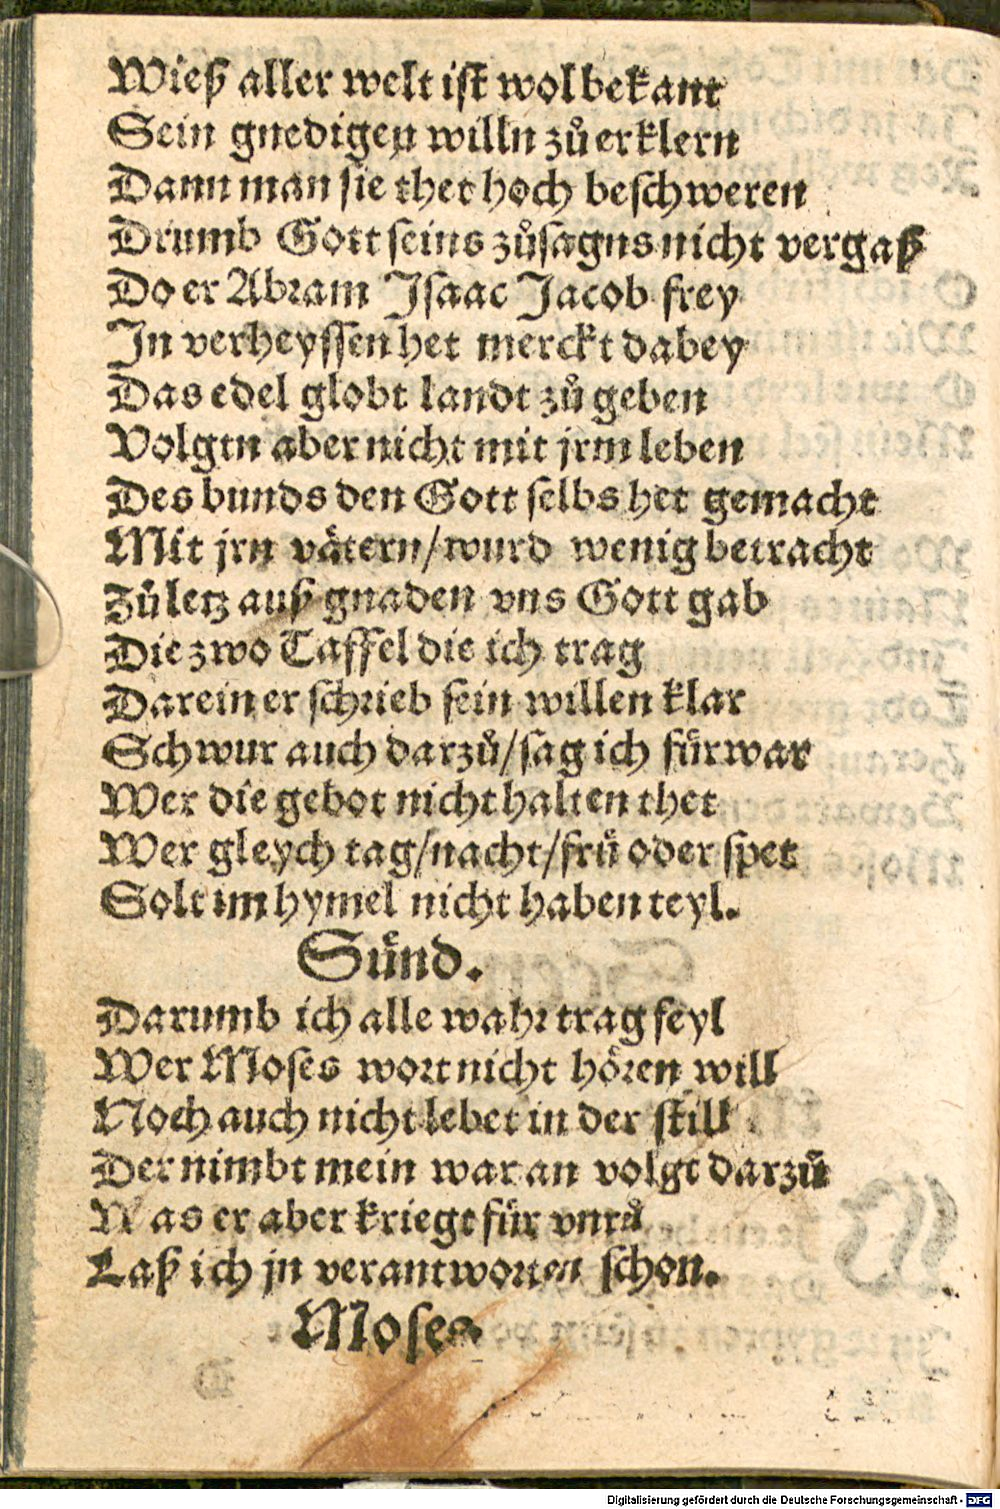 Wieß aller welt ist wol bekant
Sein gnedigen willn zů erklern
Dann man sie thet hoch beschweren
Drumb Gott seins zůsagns nicht vergaß
Do er Abram Isaac Jacob frey
In verheyssen het merckt dabey
Das edel globt landt zů geben
Volgtn aber nicht mit jrm leben
Des bunds den Gott selbs het gemacht
Mit jrn vätern/wurd wenig betracht
Zů letz auß gnaden vns Gott gab
Die zwo Taffel die ich trag
Darein er schrieb sein willen klar
Schwur auch darzů/sag ich fürwar
Wer die gebot nicht halten thet
Wer gleych tag/nacht/frü oder spet
Solt im hymel nicht haben teyl.
Sünd.
Darumb ich alle wahr trag feyl
Wer Moses wort nicht hören will
Noch auch nicht lebet in der still
Der nimbt mein war an volgt darzů
Was er aber kriegt für vnrů
Laß ich jn verantworten schon.
Moses.
Digitalisierung gefördert durch die Deutsche Forschungsgemeinschaft - DFG